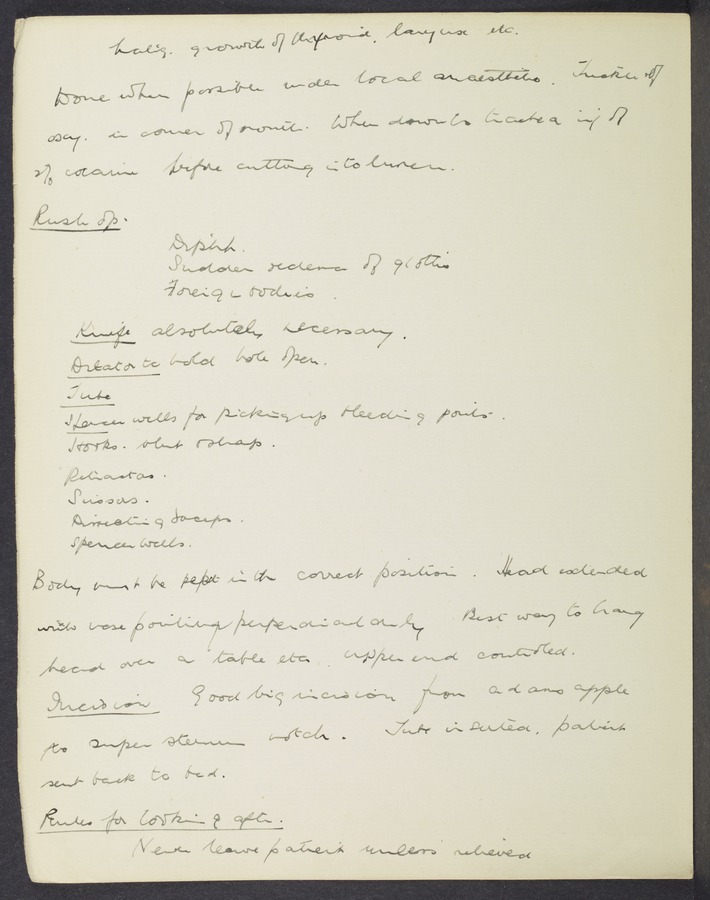 Malig. growth of thyroid, larynx etc.
Done when possible under local anaesthetic.
oxy. in corner of mouth. When down to trachea inj of
2% cocaine before cutting into lumen.
Rush op.
Diphth.
Sudden oedema of glottis
Foreign bodies.
Knife absolutely necessary.
Dilator to hold hole open.
Tube
Spencer wells for picking up bleeding points.
Hooks. blunt & sharp.
Retractors.
Scissors.
Dissecting forceps.
Spencer Wells.
Body must be kept in the correct position. Head extended
with nose pointing perpendicularly Best way to hang
head over a table etc. upper end controlled.
Incision Good big incision from adams apple
to super sternum notch. Tube inserted, patient
sent back to bed.
Rules for looking after.
Never leave patient unless relieved